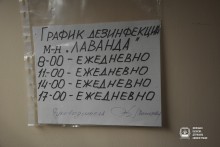 ГРАФИК ДЕЗИНФЕКЦИИ
М-Н "ЛАВАНДА"
8-00 - ЕЖЕДНЕВНО
11-00 - ЕЖЕДНЕВНО
14-00 - ЕЖЕДНЕВНО
17-00 - ЕЖЕДНЕВНО